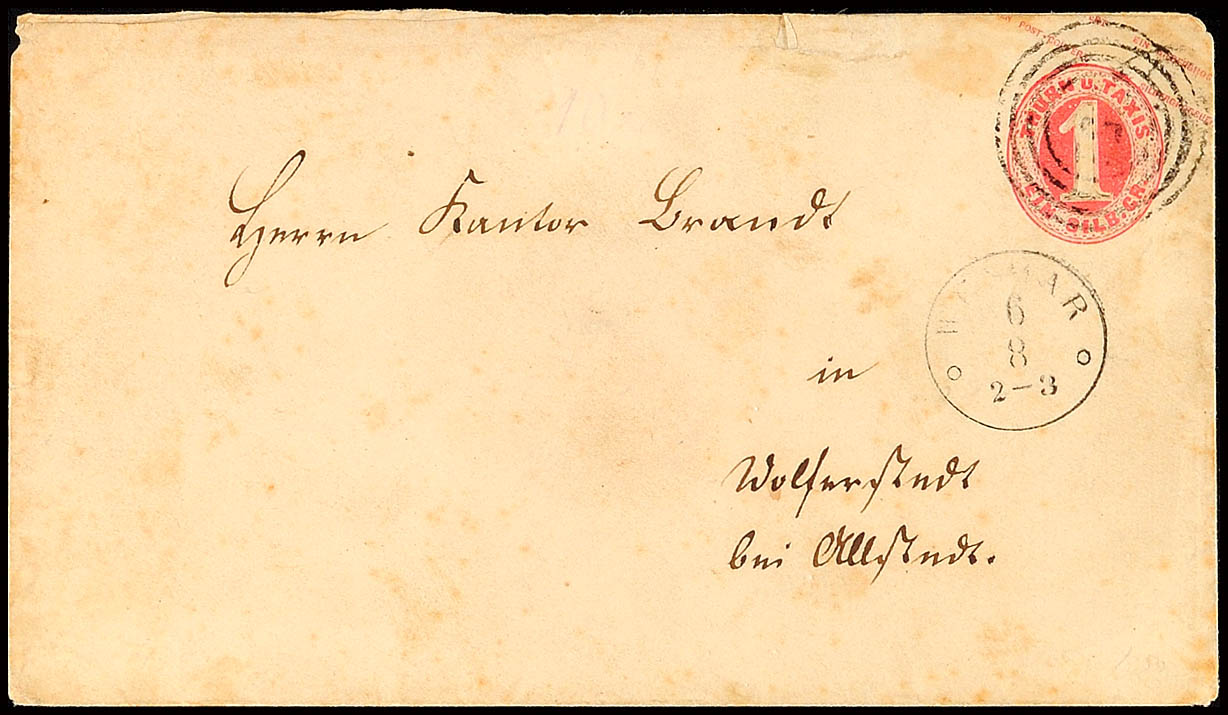 THURN U. TAXIS
1
EIN SILB. GR.
WEIMAR
6
8
2-3
Herrn Kantor Brandt
in
Wolferstedt
bei Allstedt.